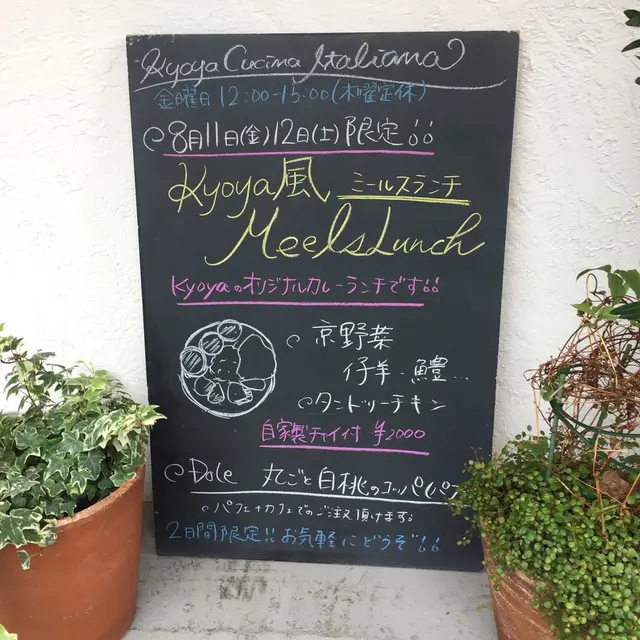 Kyoya Cucina Italiana
金曜日 12:00-15:00(木曜定休)
8月11日(金)12日(土)限定!!
Kyoya風 ミールスランチ
MeelsLunch
Kyoyaのオリジナルカレーランチです!!
京野菜
仔羊・鱧…
タンドリーチキン
自家製チャイ付 ¥2000
Dole 丸ごと白桃のコッパ(パフ
パフェ+カフェでのご注文頂けます。
2日間限定!! お気軽にどうぞ!!